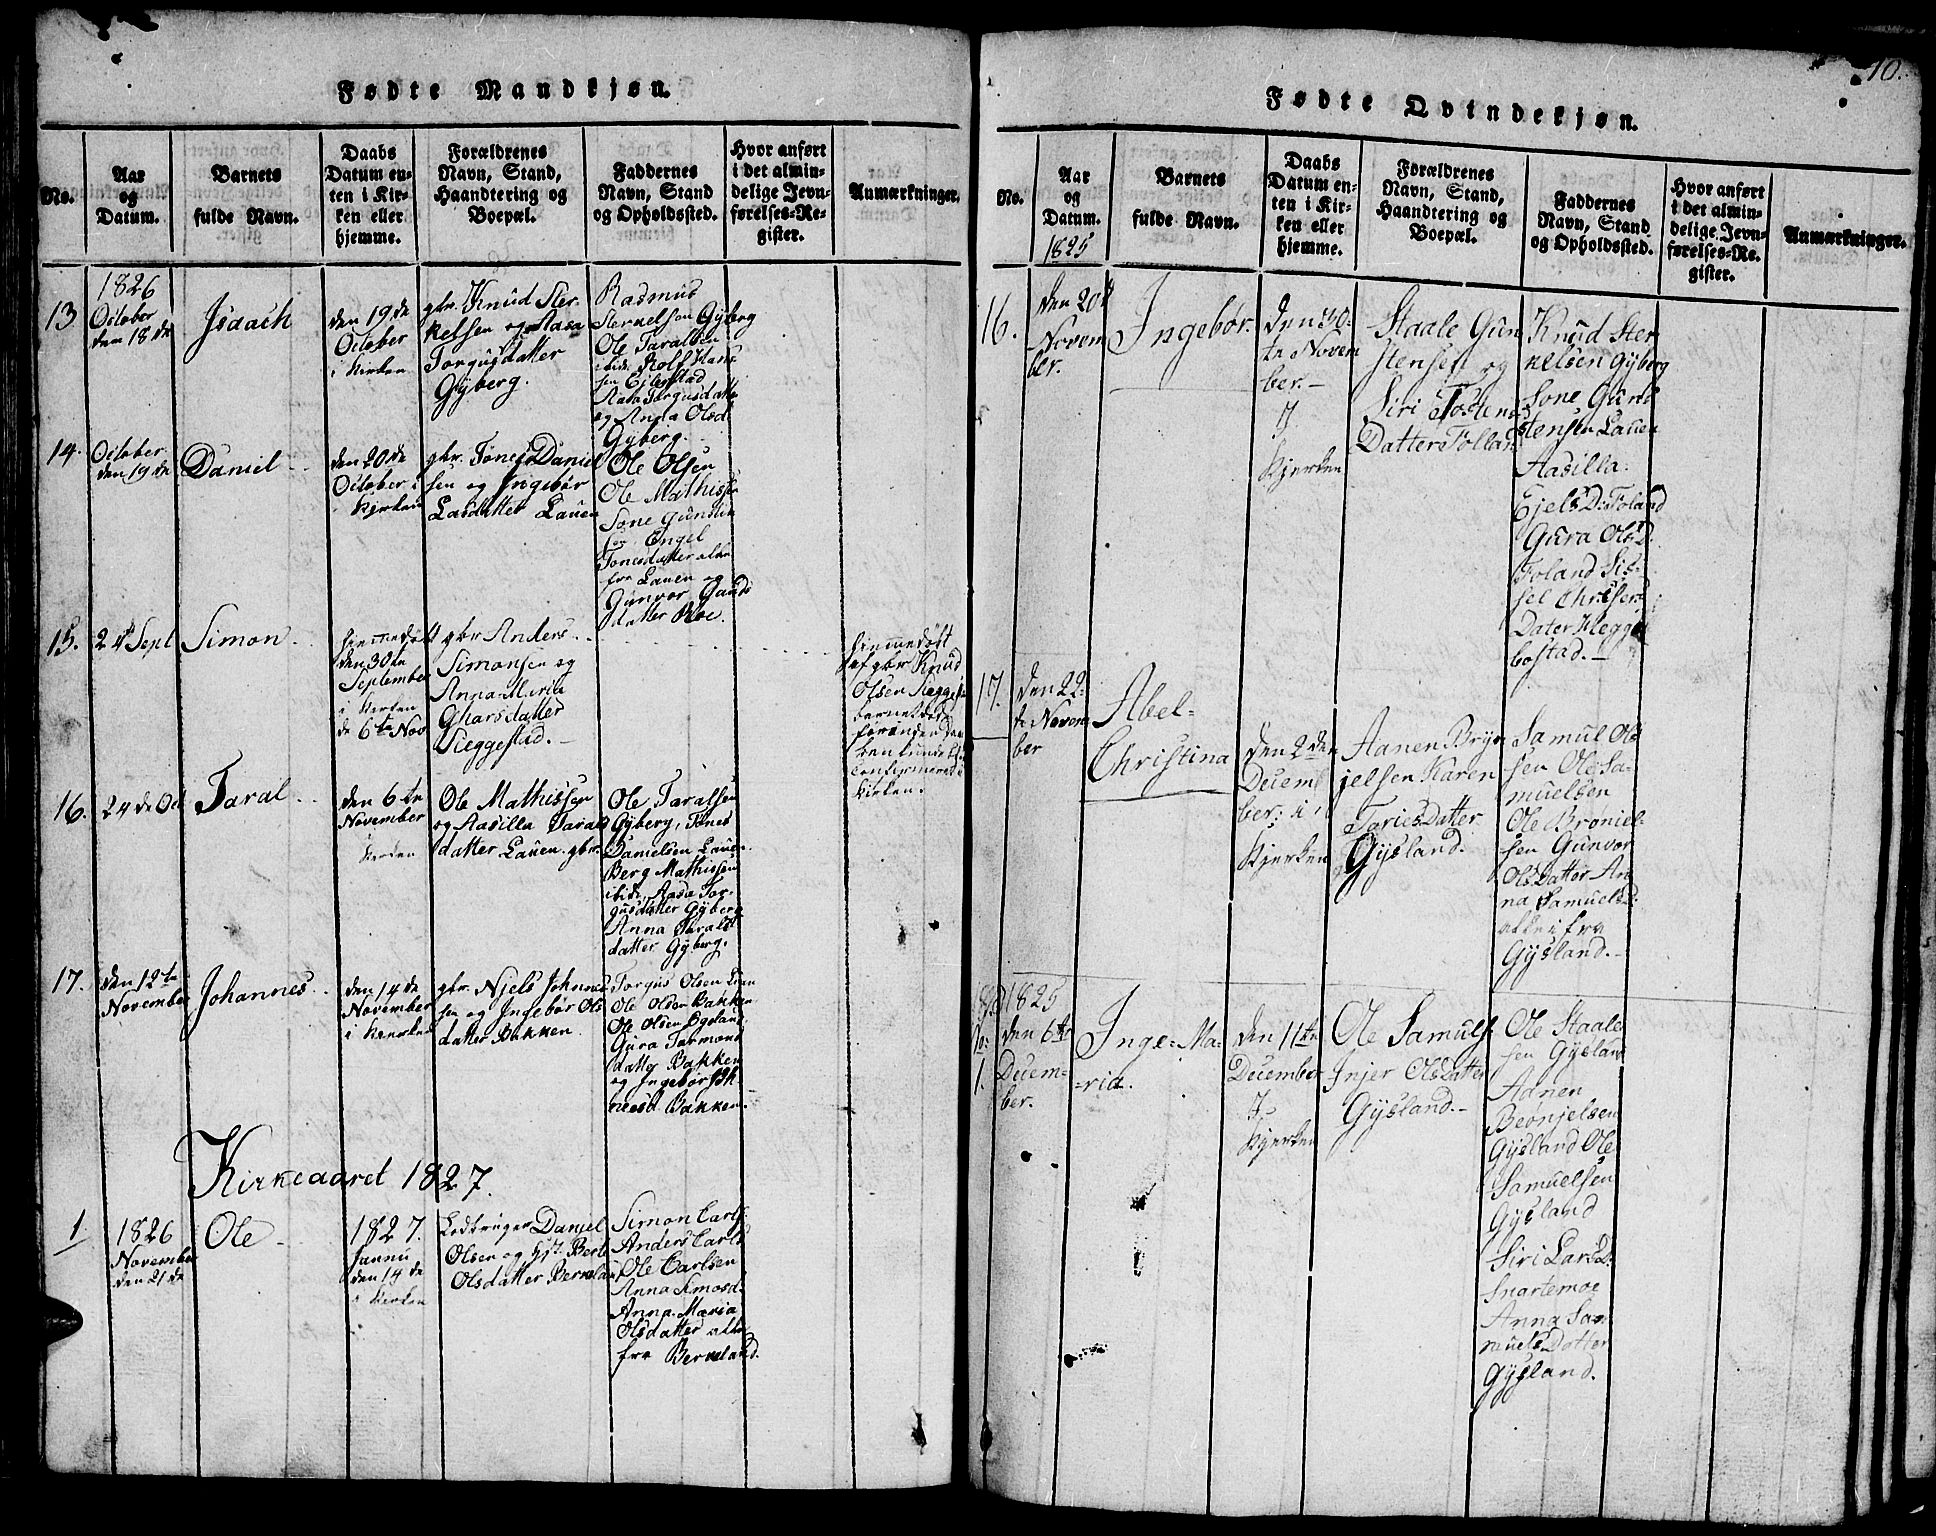 Fødte Mandkjøn.
No.
Aar
og
Datum.
Barnets
fulde Navn.
Daabs
Datum en-
ten i Kir-
ken eller
hjemme.
Forældrenes
Navn, Stand,
Haandtering og
Boepæl.
Faddernes
Navn, Stand
og Opholdssted.
Hvor anført
i det almin-
delige Jevn-
førelses-Re-
gister.
Anmærkninger.
13
1826
October
den 18de
Isaach
den 19de
October
i Kirken
gbr. Knud Ster
kelsen og Aasa
Torgusdatter
Gÿberg.
Rasmus
Sterkelsen Gÿberg
Ole Taralsen
ibid. Rolf Hans
sen Ejlestad
Aasa Torgusdatter
og Anna Olsd
Gÿberg.
14.
October
den 19de
Daniel
den 20de
October i
Kirken
gbr. Tønes Daniel
sen og Ingebør
Lasdatter Lauen
Ole Olsen
Ole Mathissen
Sone Gunstein
sen Engel
Tønesdatter alle
fra Lauen og
Gunvor
datter Moe.
15.
24 Sept
Simon
hjemmedøbt
den 30te
September
i Kirken
de 6te Nov
gbr Anders
Simonsen og
Anna Maria
datter
Sieggestad.
hjemmedøbt
af gbr Knud
Olsen
barnet død
førinden
den kunde
Confirmered i
Kirken.
16.
24de Oct
Taral
den 6te
November
Kirken
Ole Mathissen
og Aasilla Tarals
datter Lauen. gbr.
Ole Taralsen
Gÿberg, Tønes
Danielsen Lauen.
Berg Mathissen
ibid, Aasa Tor-
gusdatter Gÿberg
Anna Tarals
datter Gÿberg.
17.
den 12te
November
Johannes
den 14de
November
i Kirken
gbr. Njels Johannes
sen og Ingebør Ols
datter Bakken
Torgus Olsen
Ole Olsen Bakken
Ole Olsen Egeland
Gura Tarmons
datter Bakken
og Ingebør Joh
nesd. Bakken.
Kirkeaaret 1827.
1.
1826
November
den 21de
Ole
1827.
Janvu
den 14de
i Kirken
Ledbruger Daniel
Olsen og Hst. Berte
Olsdatter Berveland
Simon Carls
Anders Carls
Ole Carlsen
Anna Simosd.
Anna Maria
Olsdatter alle
fra Berveland.
10.
Fødte Qvindekjøn.
No.
Aar
og
Datum.
1825
Barnets
fulde Navn.
Daabs
Datum en-
ten i Kir-
ken eller
hjemme.
Forældrenes
Navn, Stand,
Haandtering og
Boepæl.
Faddernes
Navn, Stand
og Opholdssted.
Hvor anført
i det almin-
delige Jevn-
førelses-Re-
gister.
Anmærkninger.
16.
den 20d
Novem
ber.
Ingebør.
den 30-
te Novem
ber.-
I
Kjerken
Staale Gun
stensen og
Siri Tostens
Datter Follan
Knud Ster
kelsen Gÿberg
Sone Guns
tensen Lauen
Aasilla
Ejels D: Foland
Gura Ols D.
Foland Sis-
sel
Dater Hegge
bostad.-
17.
den 22-
te Novem
ber
Abel-
Christina
den 2den
Decem
ber: i
Kjerken
Aanen Bryn
jelsen Karen
Tories Datter
Gÿsland.
Samul Ols
sen Ole Sa-
muelsen
Ole Broniel-
sen Gunvor
Ols Datter An
na Samuels
alle i fra
Gÿsland.-
1825
No:
1.
den 6te
Decem-
ber.
Inge-Ma-
ria.
den 11te
December
I
Kjerken
Ole Samuls
Injer OlsDatter
Gÿsland.-
Ole Staale
sen Gÿsland
Aanen
Beonjelsen
Gÿsland Ole
Samuelsen
Gÿsland
Siri Lars D:
Snartemoe
Anna Sa
muels Datter
Gÿsland.